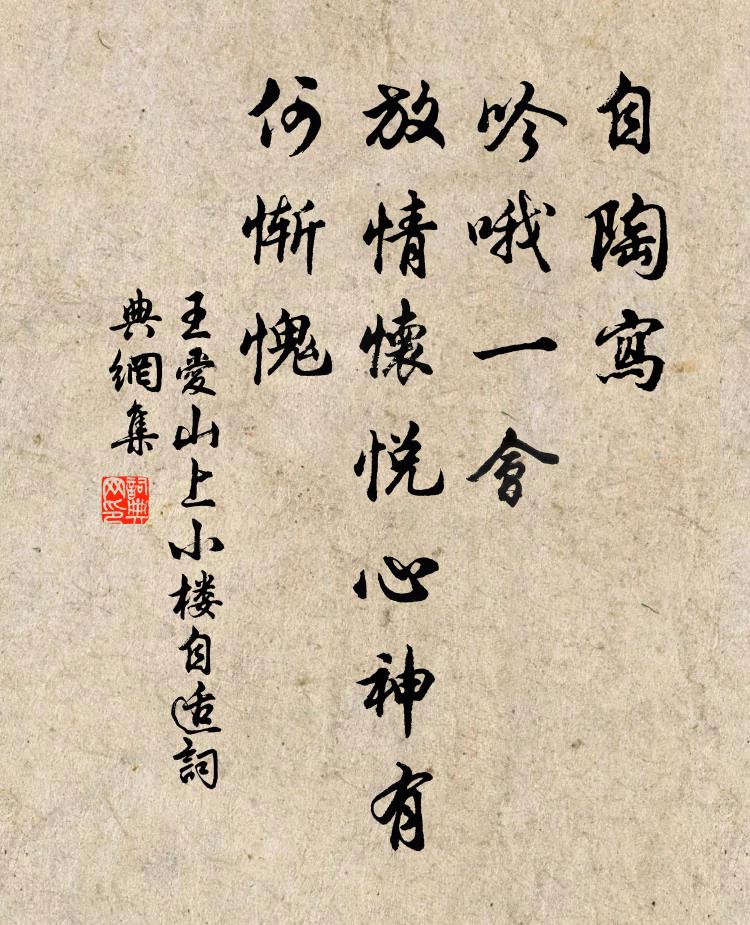 自陶寫
吟哦一會
放情懷悅心神有
何慚愧
王愛山上小楼自适詞
典網集
詞典網印